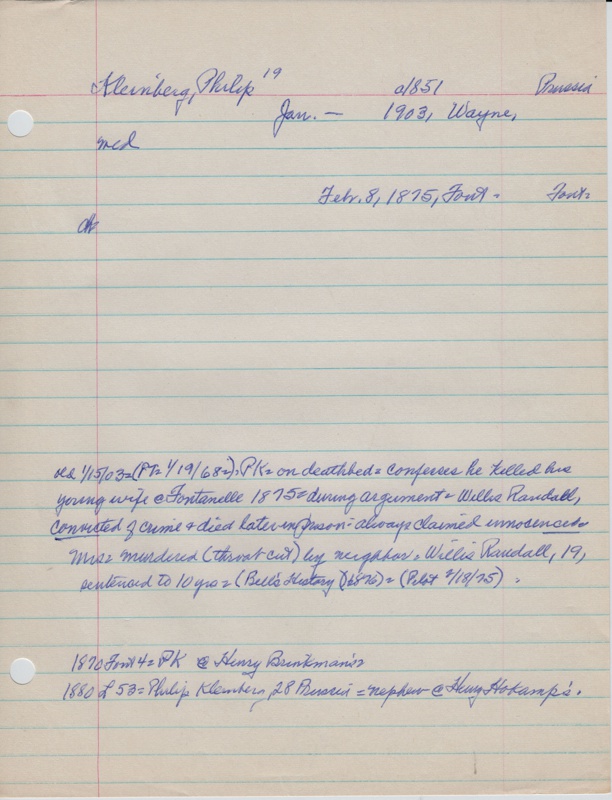 Kleinberg, Philip 19 c/1851 Prussia
Jan. — 1903, Wayne,
md
Feb. 8, 1875, Font= Font=
ch
1/15/03=(PT= 1/19/68=)=PK= on deathbed= confesses he killed his
young wife @ Fontanelle 1875= during argument= Willis Randall,
convicted of crime + died later in prison= always claimed innocence=
Mrs= murdered (throat cut) by neighbor= Willis Randall, 19,
sentenced to 10 yrs= (Bell's History)(1876)= (Pilot 2/18/75).
1870 Font 4= PK @ Henry Brinkman's=
1880 L 53= Philip Kleinberg, 28 Prussia= nephew @ Henry Hokamp's.